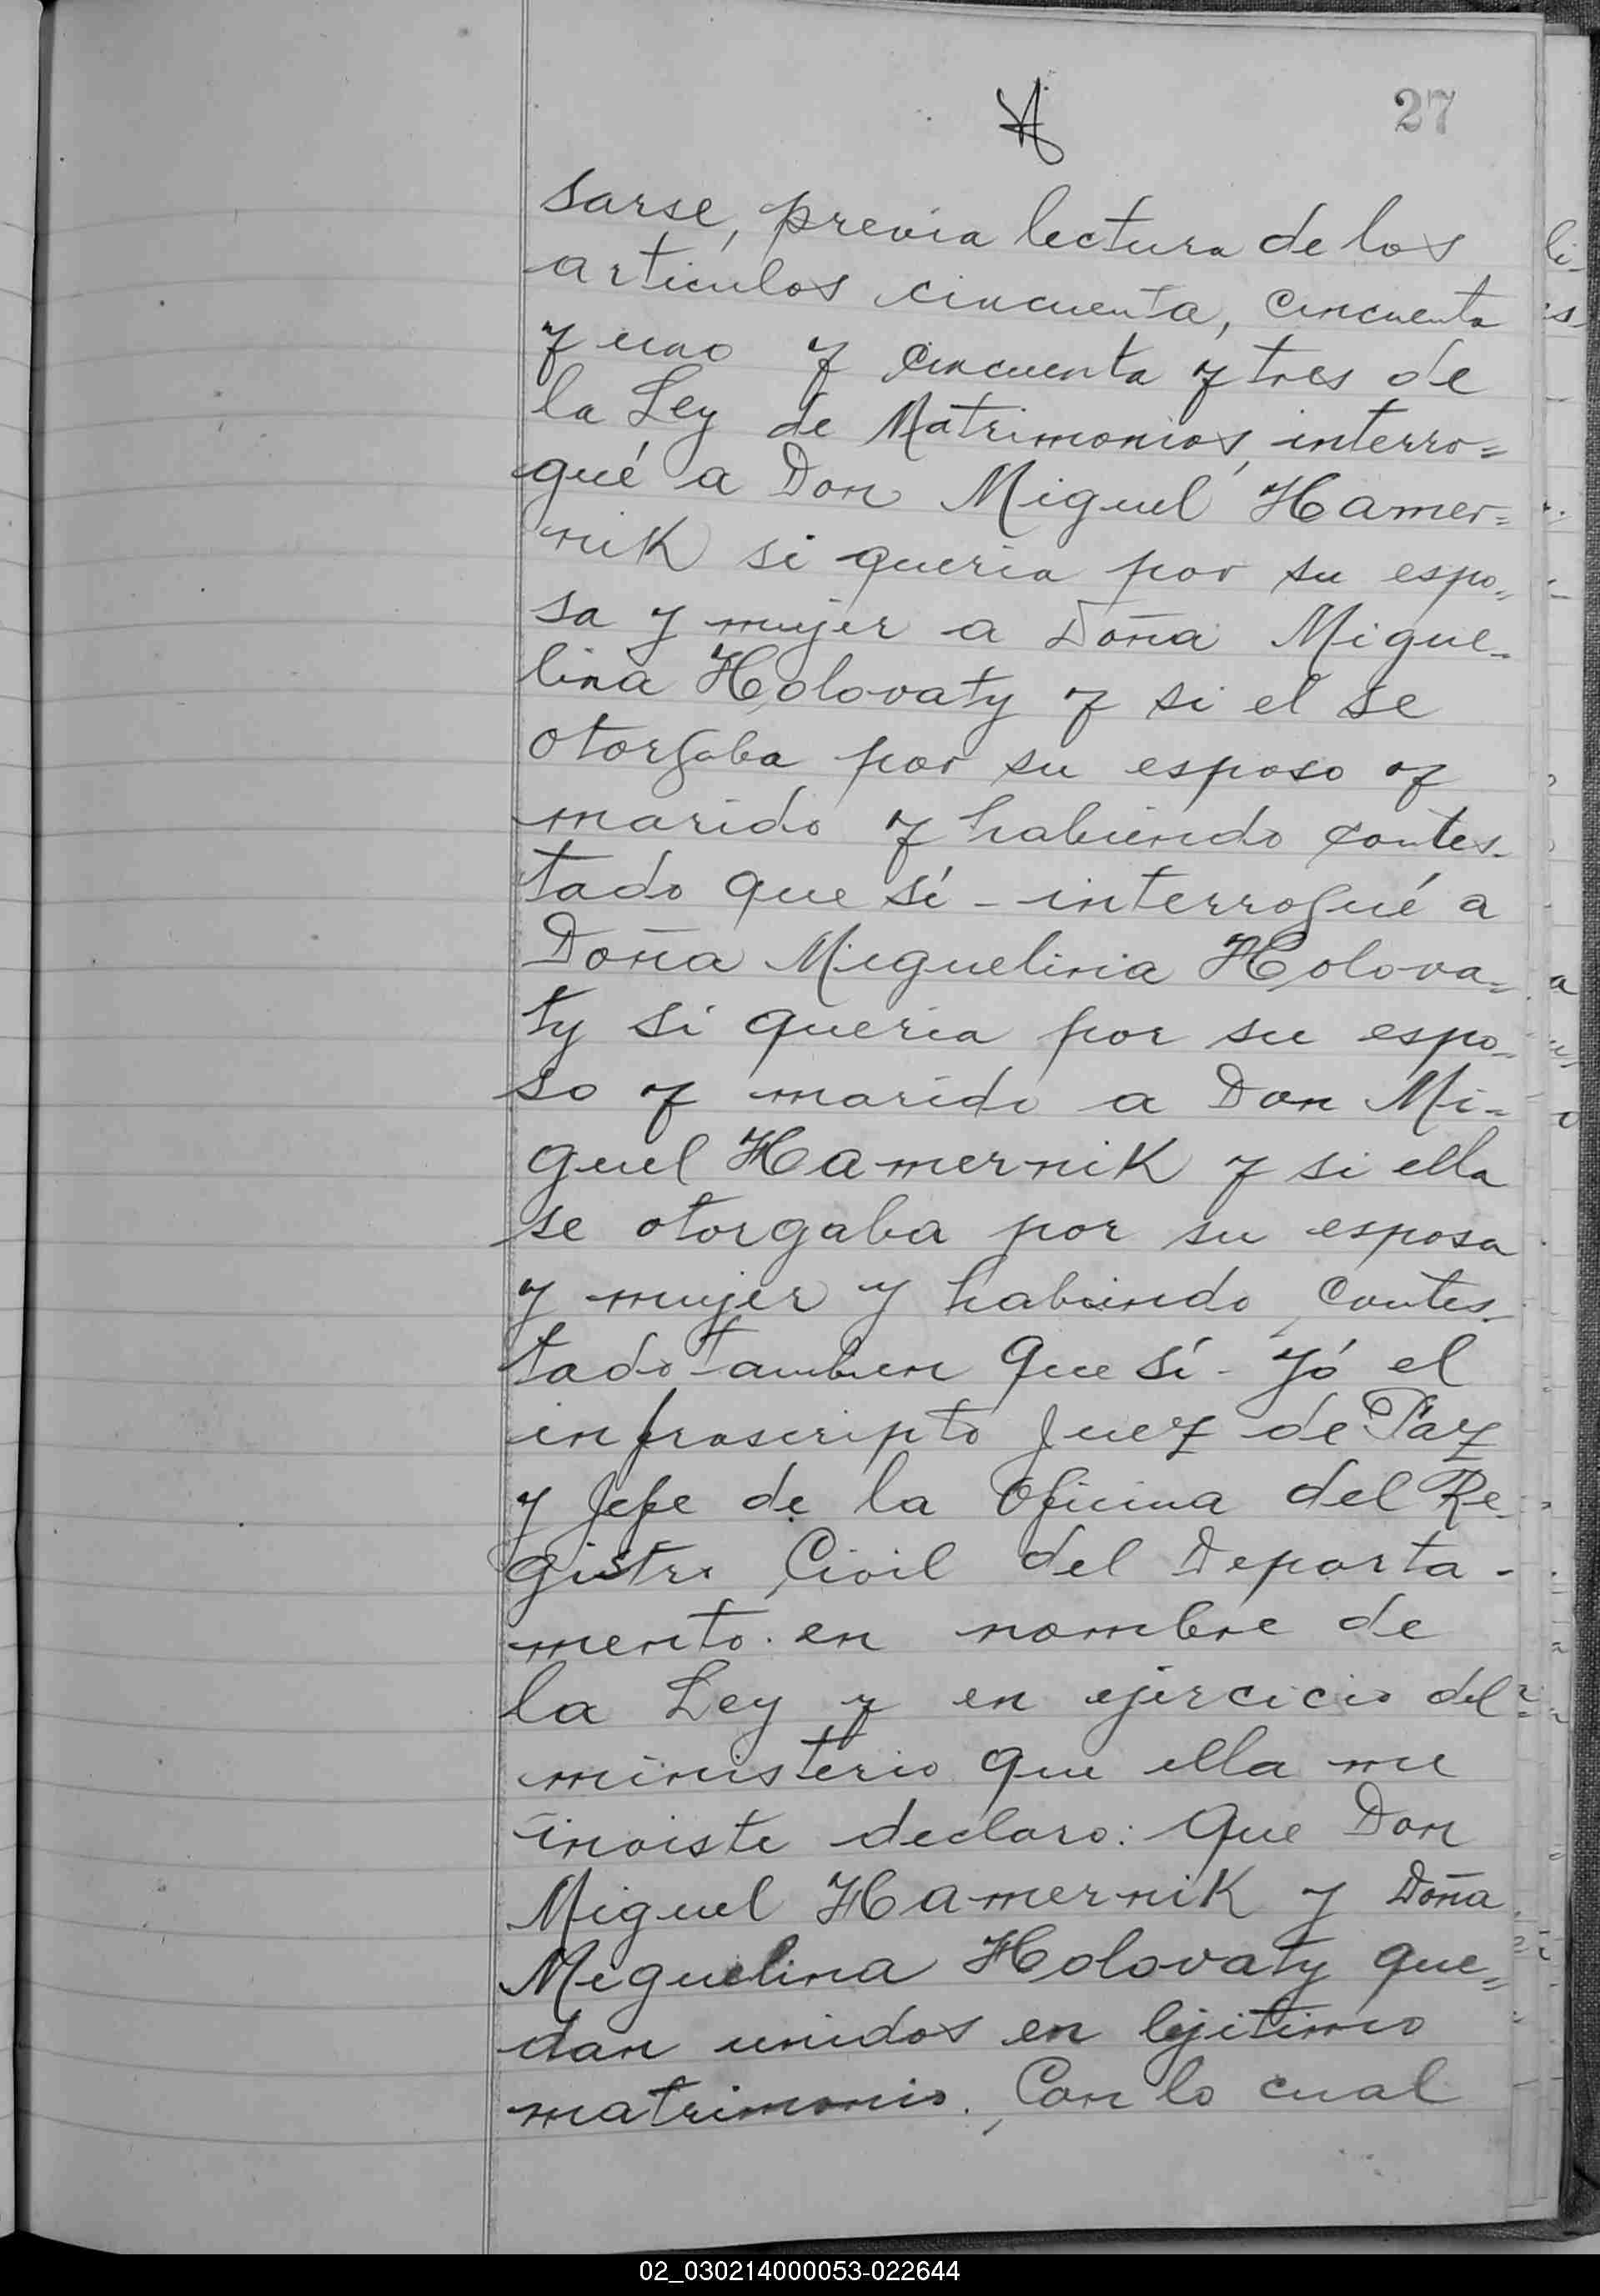 27
sarse, previa lectura de los
articulos cincuenta, cincuenta
y uno y cincuenta y tres de
la Ley de Matrimonios, interro=
gué a Don Miguel Hamer=
nik si queria por su espo=
sa y mujer a Doña Migue-
lina Holovaty y si el se
otorgaba por su esposo y
marido y habiendo contes-
tado que sí - interrogué a
Doña Miguelina Holova=
ty si queria por su espo=
so y marido a Don Mi=
guel Hamernik y si ella
se otorgaba por su esposa
y mujer y habiendo contes-
tado tambien que sí - Yó el
infrascripto Juez de Paz
y Jefe de la Oficina del Re-
gistro Civil del Departa-
mento. en nombre de
la Ley y en ejercicio del
ministerio que ella me
inviste declaro: Que Don
Miguel Hamernik y Doña
Miguelina Holovaty que=
dan unidos en lejitimo
matrimonio. Con lo cual
02_030214000053-022644